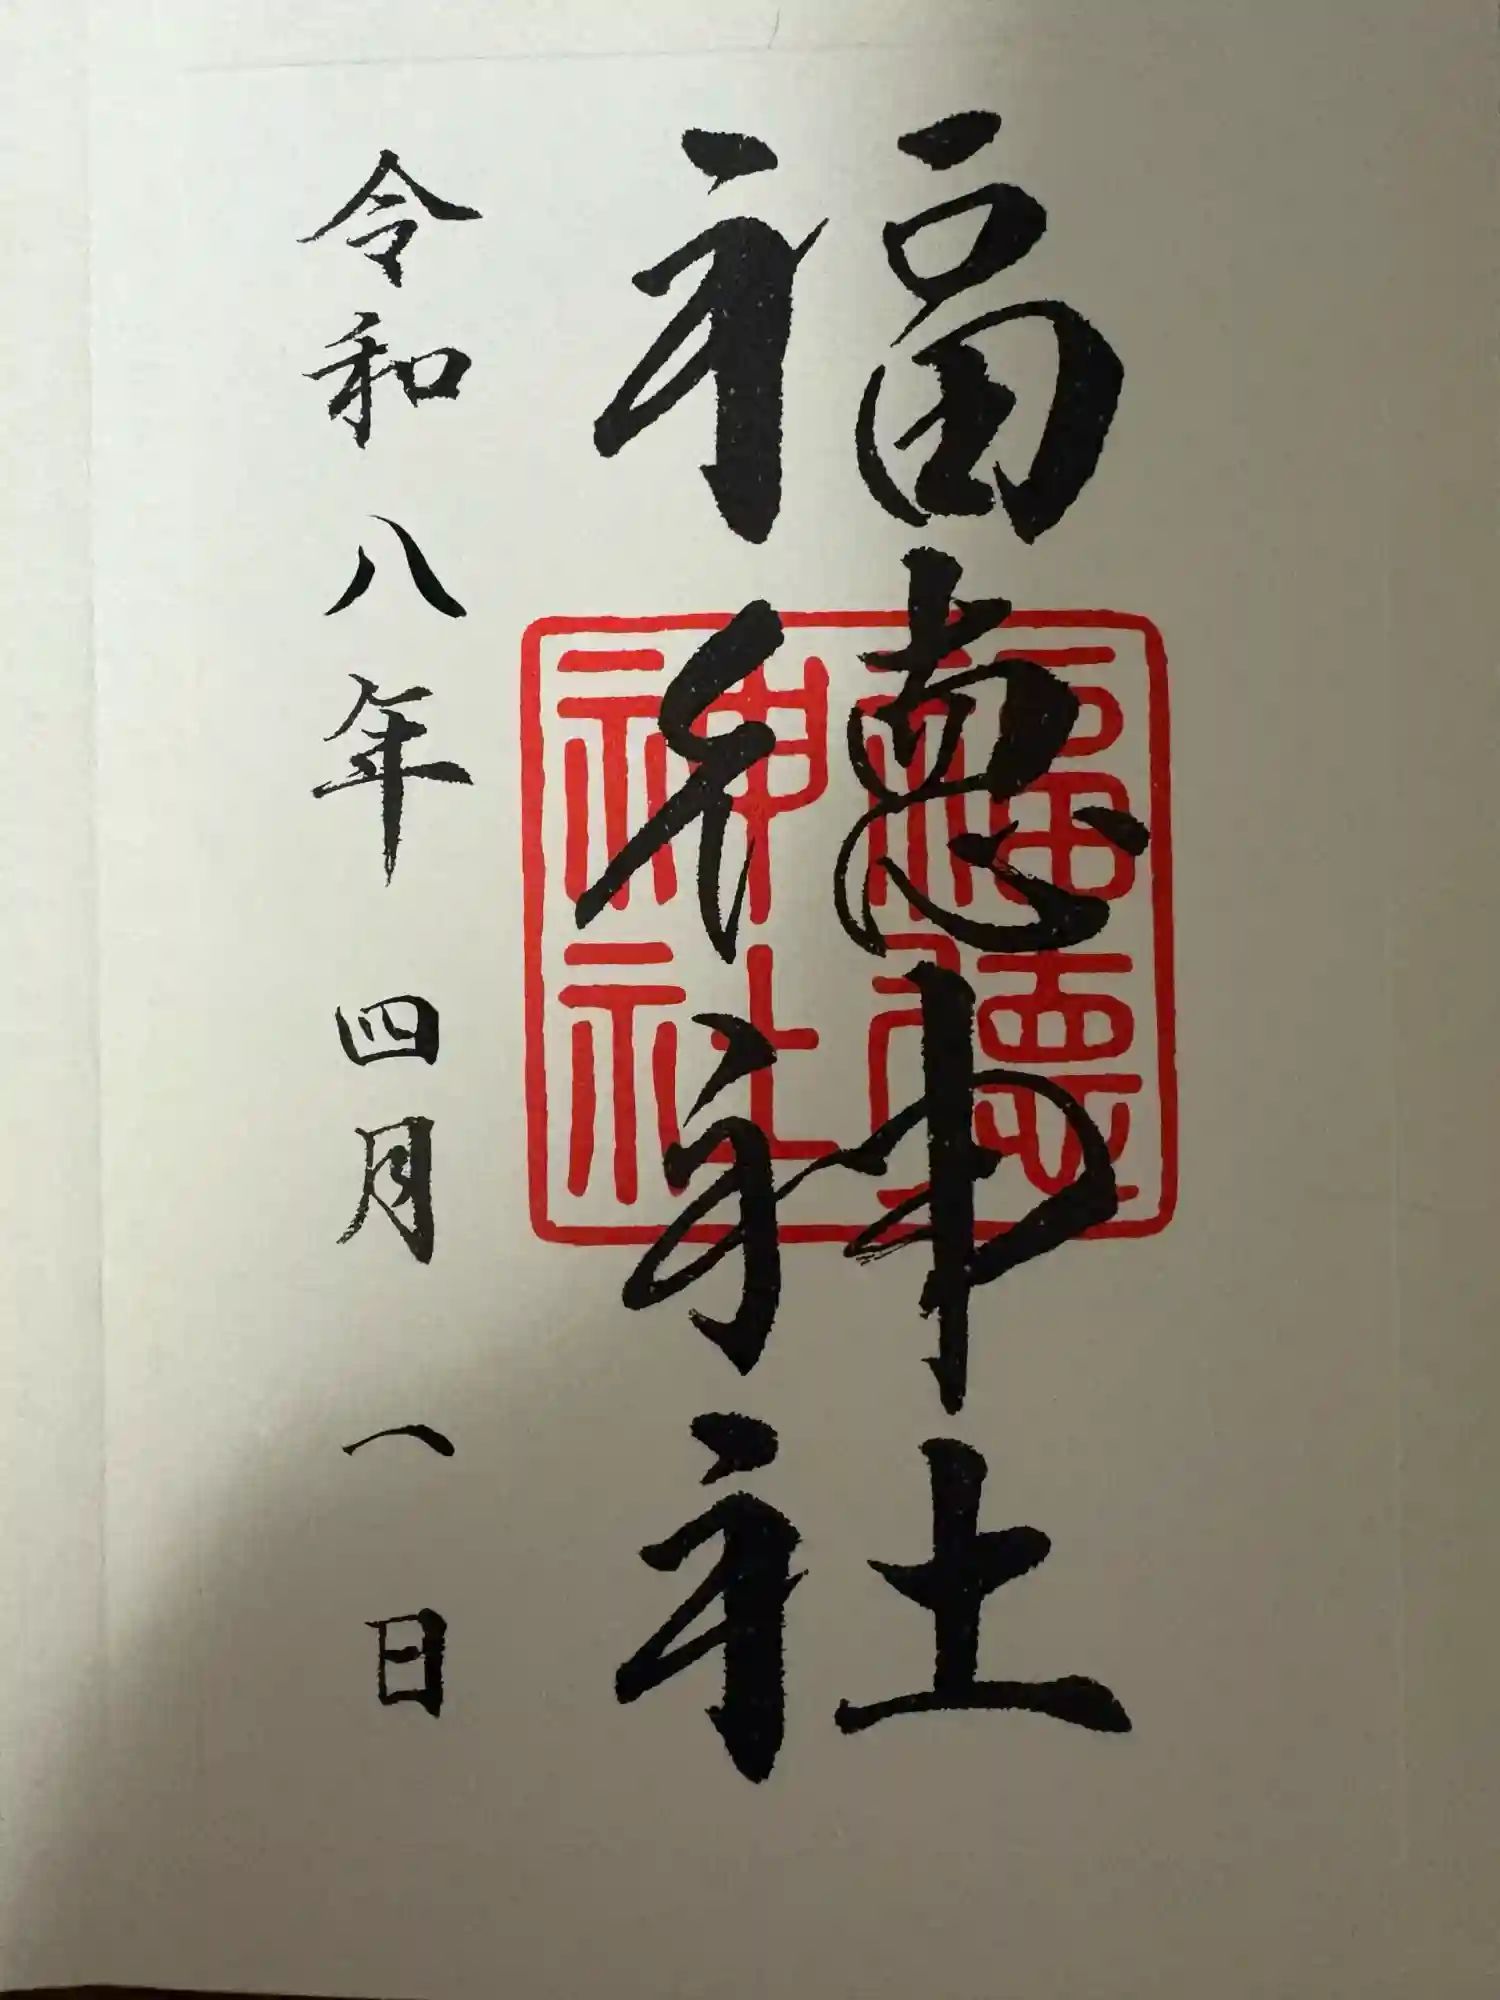 福徳神社
令和八年四月一日
福徳
神社